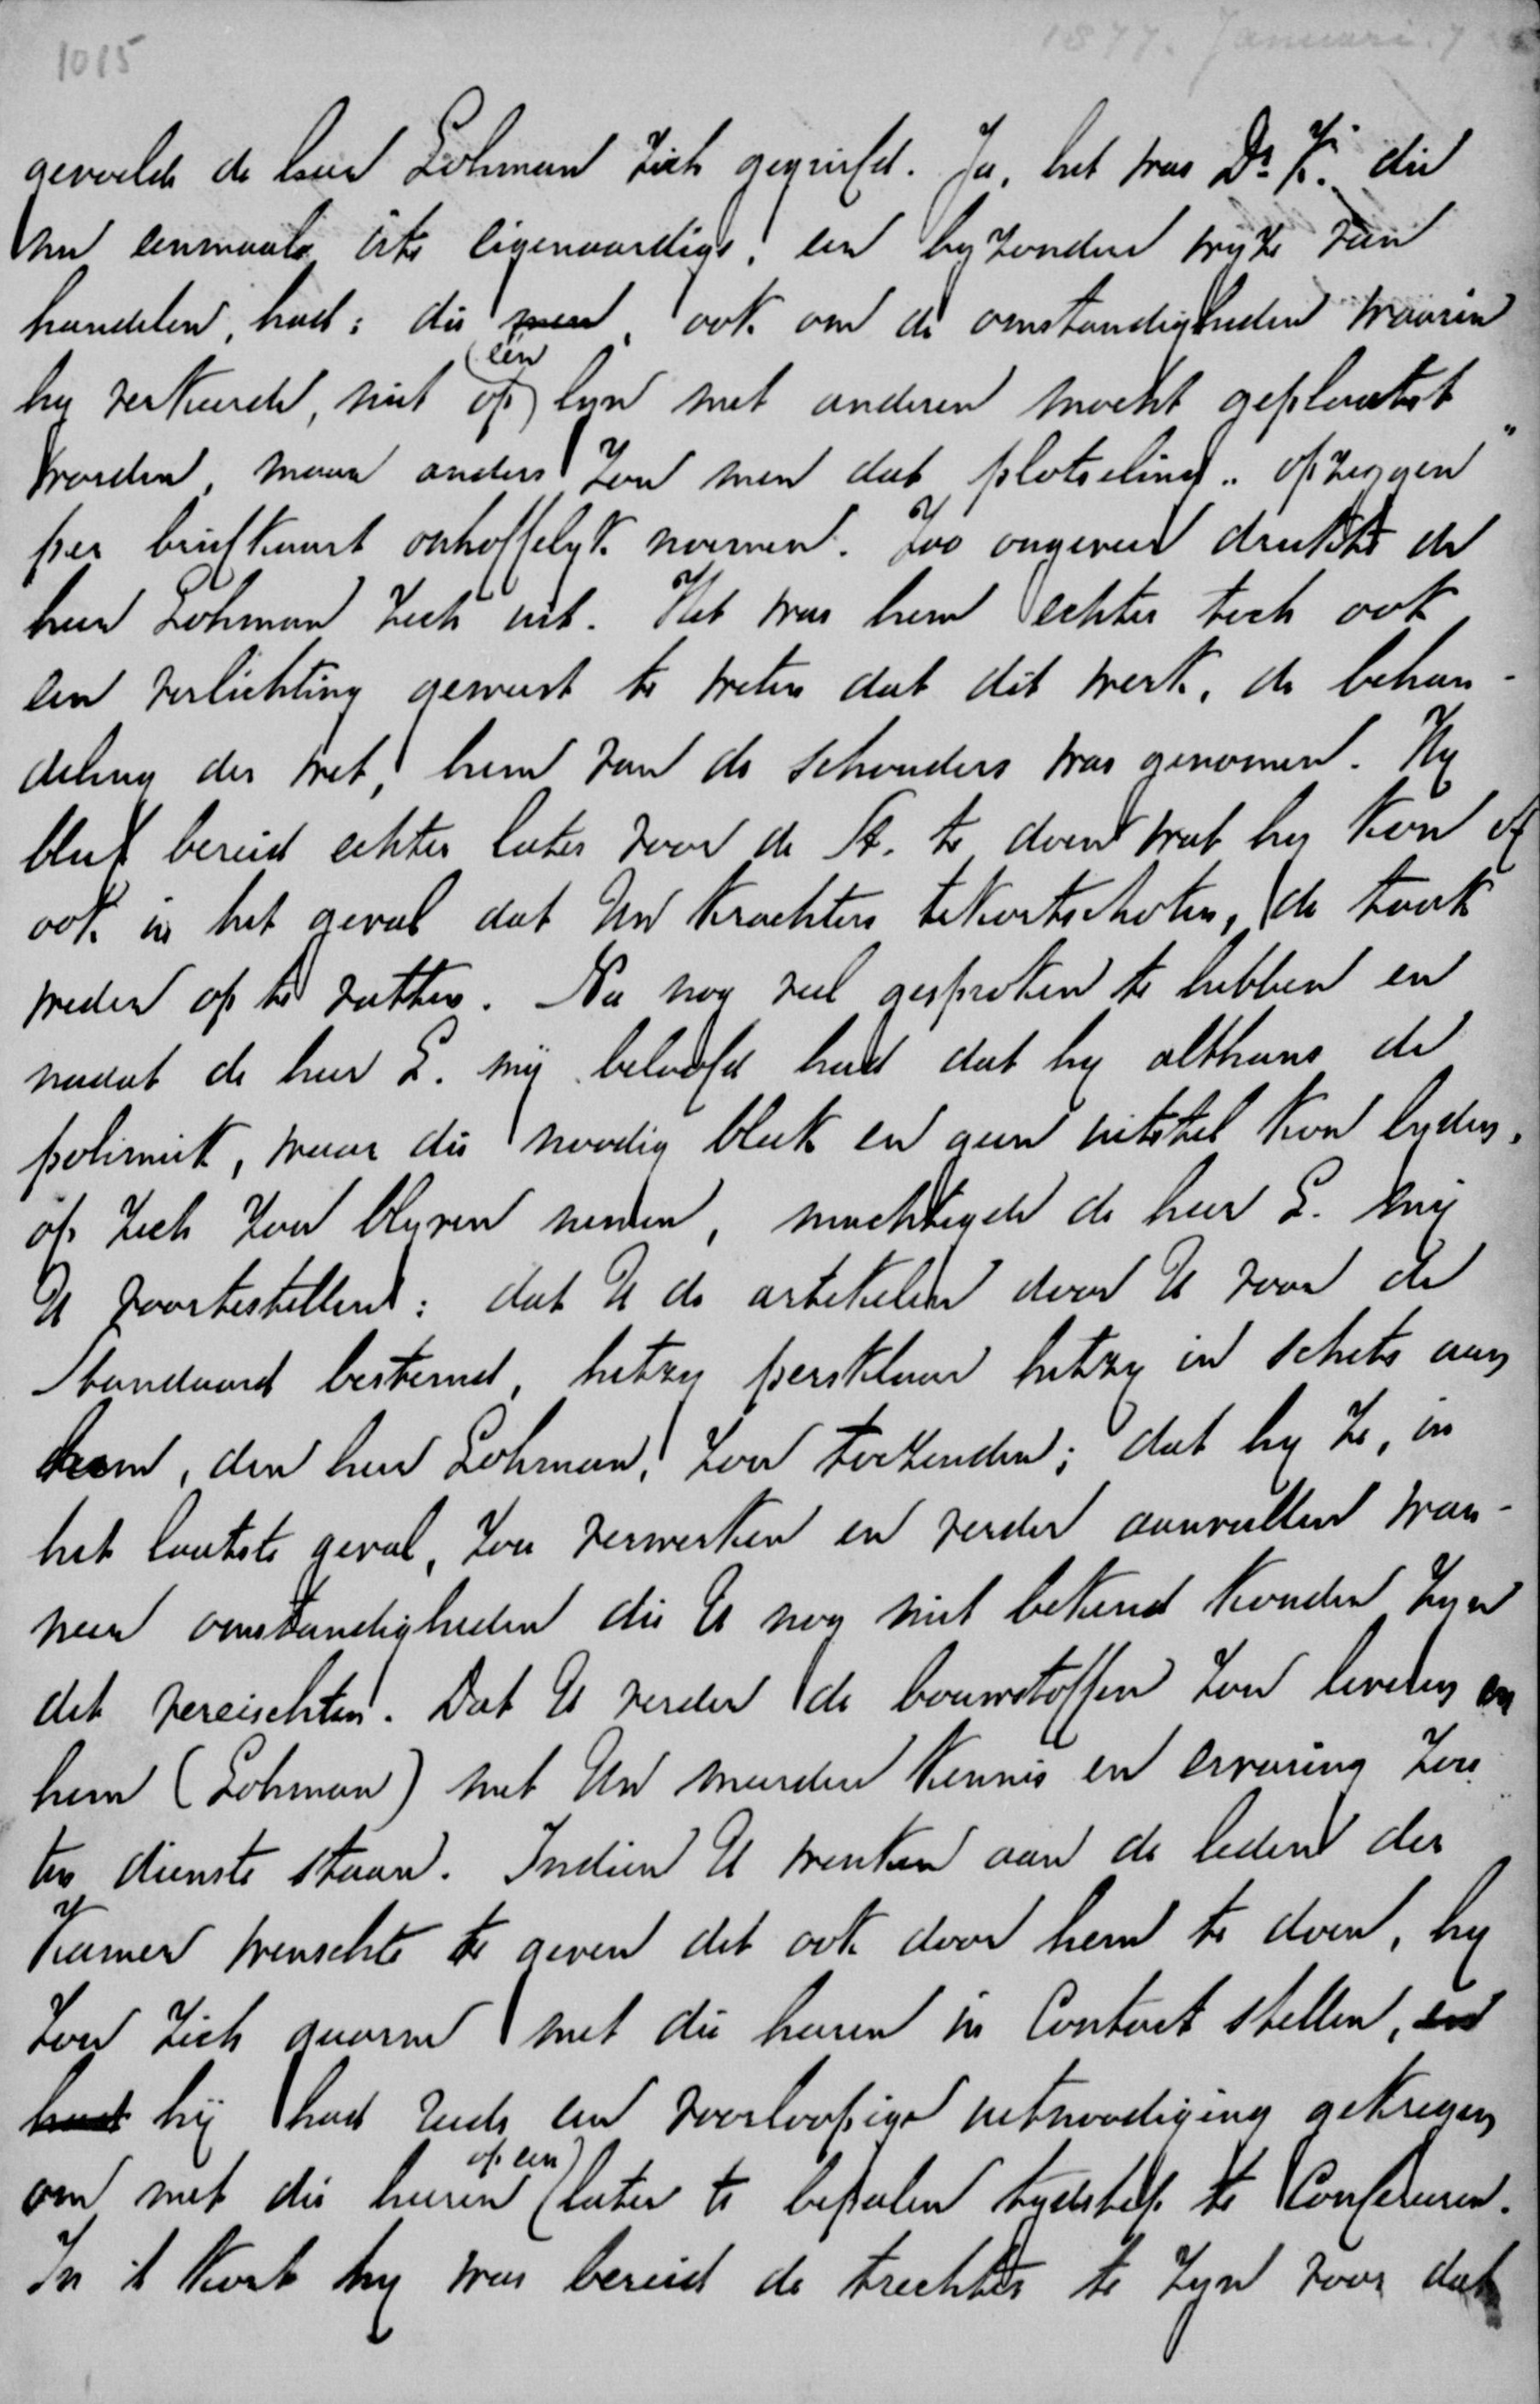 1015
1877. Januari. 7
gevoelde de heer Lohman zich gegriefd. Ja, het was Dr. K. die
nu eenmaal iets eigenaardigs, een byzondere wyze van
handelen, had; die men, ook om de omstandigheden waarin
hy verkeerde, niet op één lyn met anderen mocht geplaatst
worden, maar anders zou men dat plotseling „opzeggen"
per briefkaart onhoffelyk noemen. Zoo ongeveer drukte de
heer Lohman zich uit. Het was hem echter toch ook
een verlichting geweest te weten dat dit werk, de behan-
deling der wet, hem van de schouders was genomen. Hy
bleef bereid echter later voor de St. te doen wat hy kon of
ook in het geval dat Uw krachten tekortschoten, de taak
weder op te vatten. Na nog veel gesproken te hebben en
nadat de heer L. mij beloofd had dat hy althans de
polimiek, waar die noodig bleek en geen uitstel kon lyden,
op zich zou blyven nemen, machtigde de heer L. mij
U voortestellen: dat U de artikelen door U voor de
Standaard bestemd, hetzy persklaar hetzy in schets aan
hem, den heer Lohman, zou toezenden; dat hy ze, in
het laatste geval, zou verwerken en verder aanvullen wan-
neer omstandigheden die U nog niet bekend konden zyn
dit vereischten. Dat U verder de bouwstoffen zou leveren en
hem (Lohman) met Uw meerdere kennis en ervaring zou
ten dienste staan. Indien U wenken aan de leden der
Kamer wenschte te geven dit ook door hem te doen, hy
zou zich gaarne met die heeren in Contact stellen, en
had hij had reeds een voorloopige uitnoodiging gekregen
om met die heeren op een later te bepalen tydstip te Confereeren.
In 't kort hy was bereid de trechter te zyn voor dat